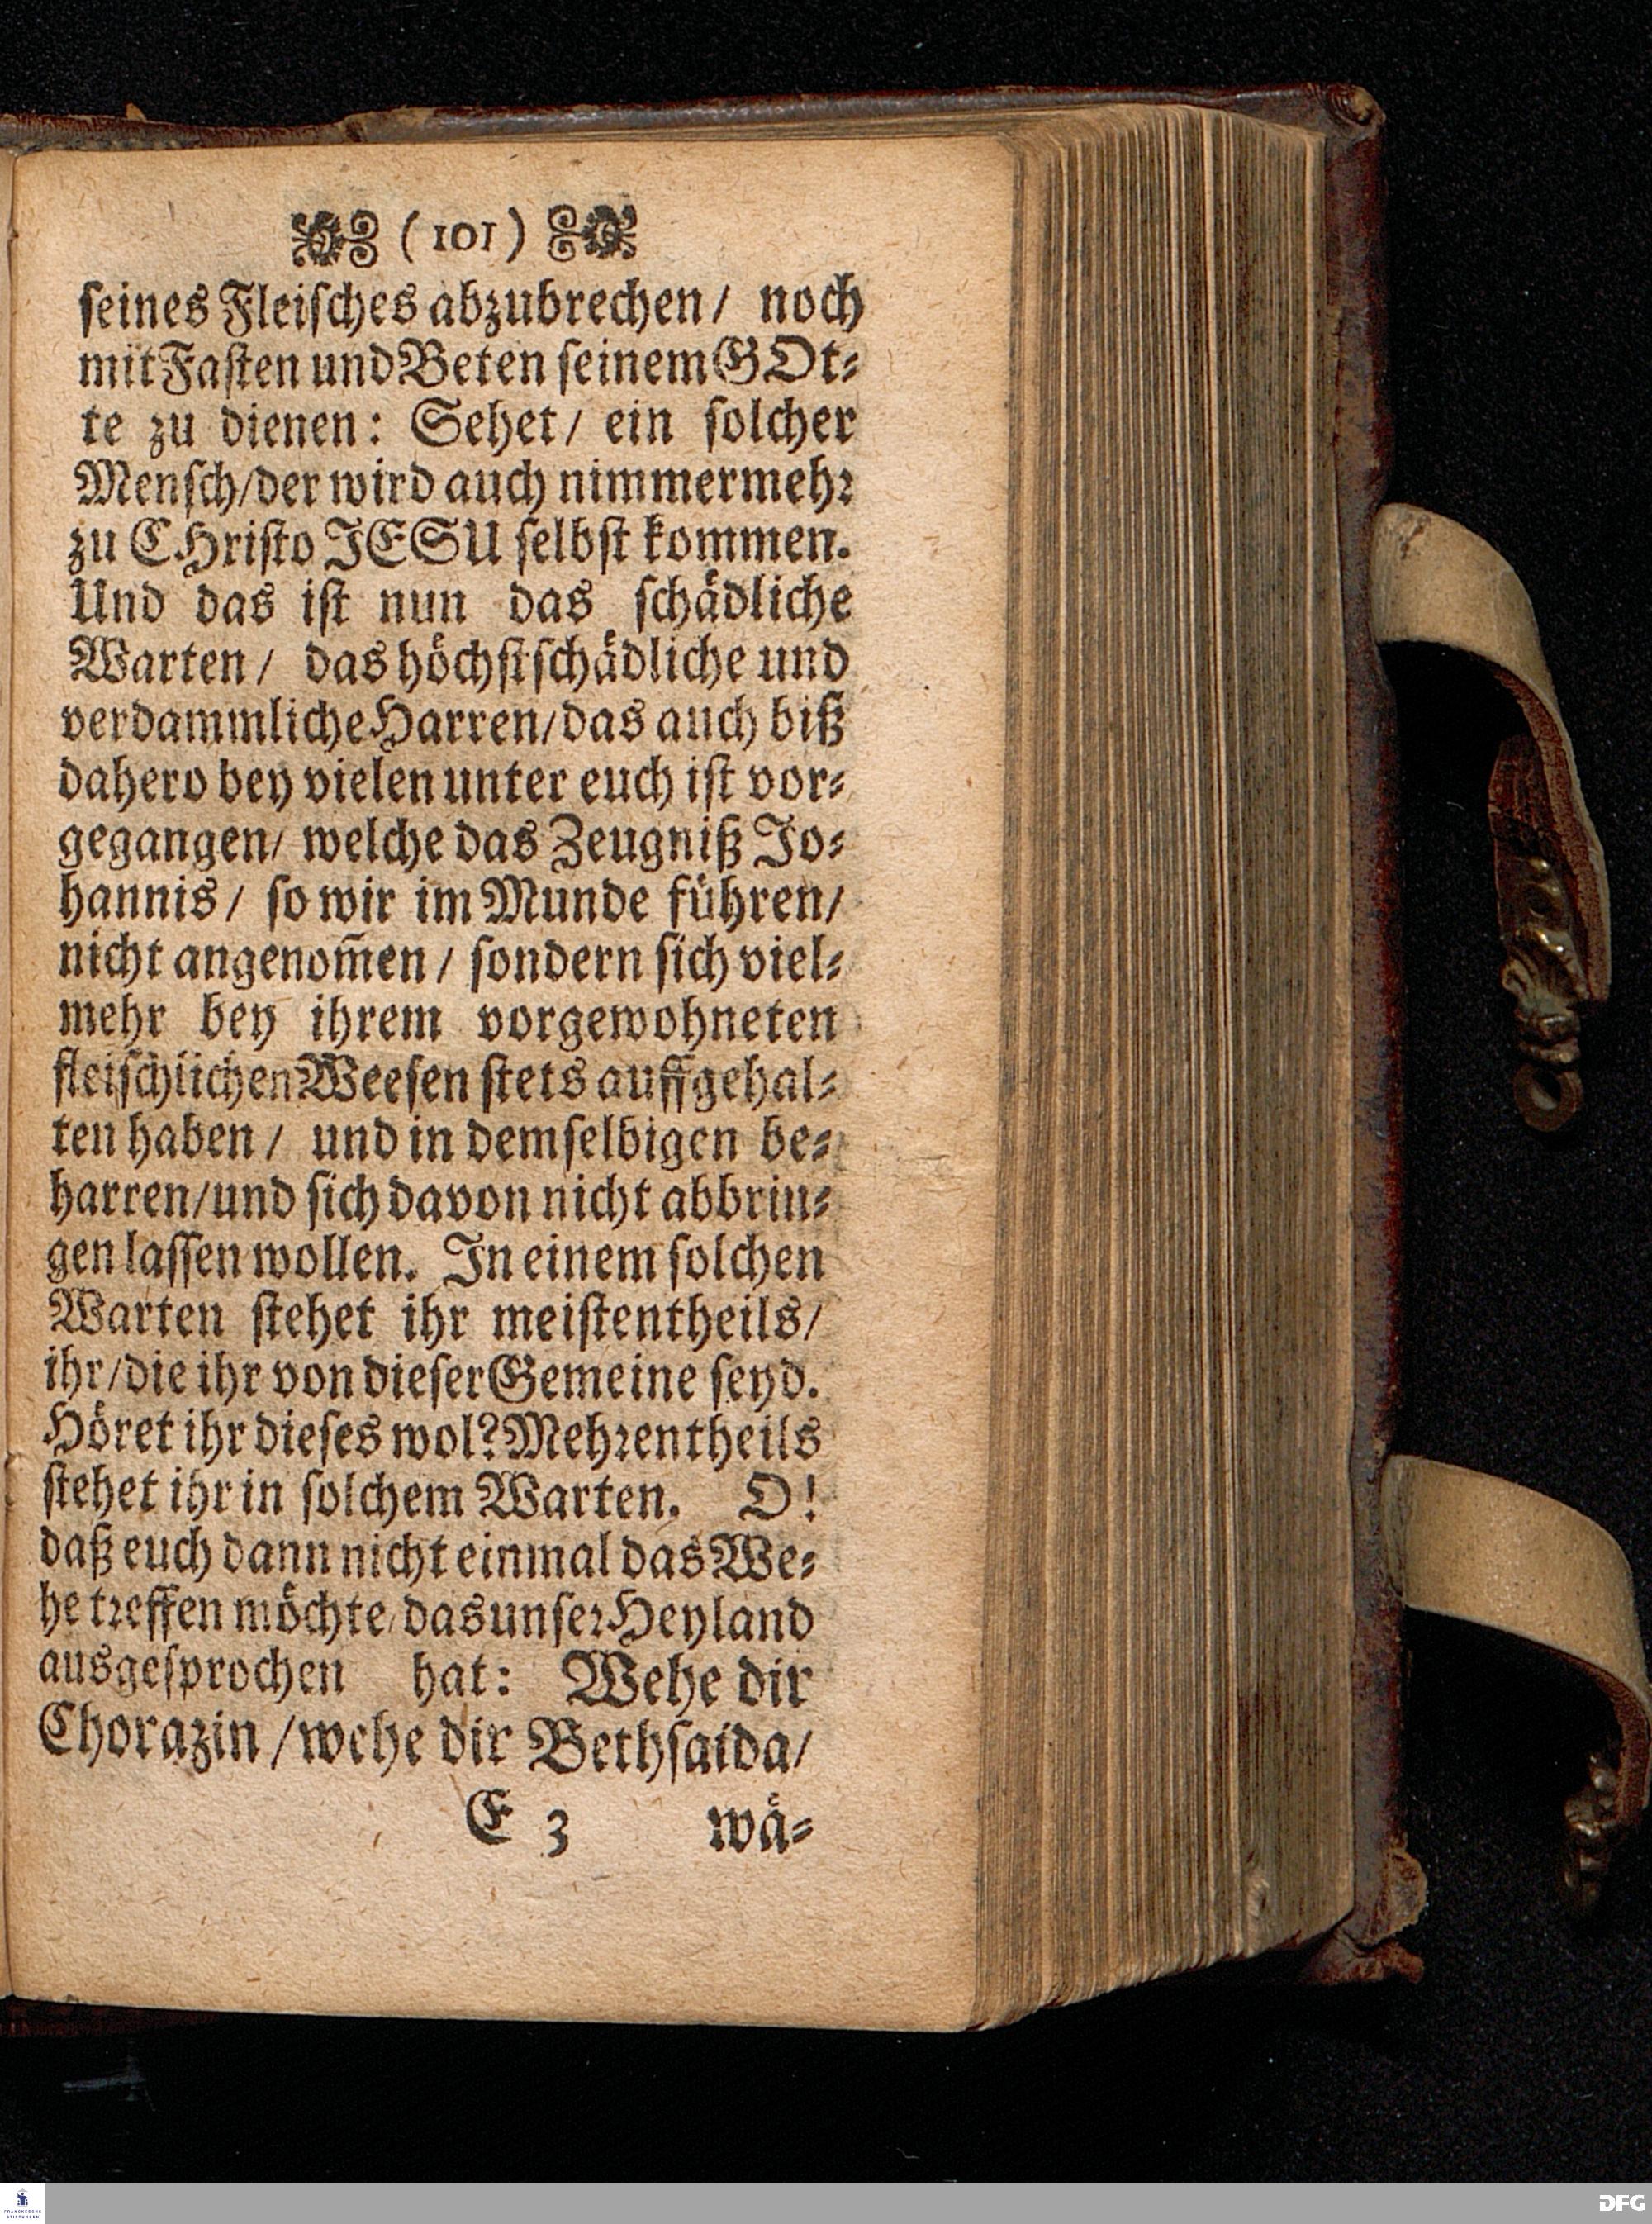 (101)
seines Fleisches abzubrechen/ noch
mit Fasten und Beten seinem GOt-
te zu dienen: Sehet/ ein solcher
Mensch/der wird auch nimmermehr
zu CHristo JESU selbst kommen.
Und das ist nun das schädliche
Warten/ das höchstschädliche und
verdammliche Harren/das auch biß
dahero bey vielen unter euch ist vor-
gegangen/ welche das Zeugniß Jo-
hannis/ so wir im Munde führen/
nicht angenom̃en/ sondern sich viel-
mehr bey ihrem vorgewohneten
fleischlichen Weesen stets auffgehal-
ten haben/ und in demselbigen be-
harren/und sich davon nicht abbrin-
gen lassen wollen. In einem solchen
Warten stehet ihr meistentheils/
ihr/die ihr von dieser Gemeine seyd.
Höret ihr dieses wol? Mehrentheils
stehet ihr in solchem Warten. O!
daß euch dann nicht einmal das We-
he treffen möchte/das unser Heyland
ausgesprochen hat: Wehe dir
Chorazin/wehe dir Bethsaida/
E 3 wä-
FRANCKESCHE
STIFTUNGEN
DFG